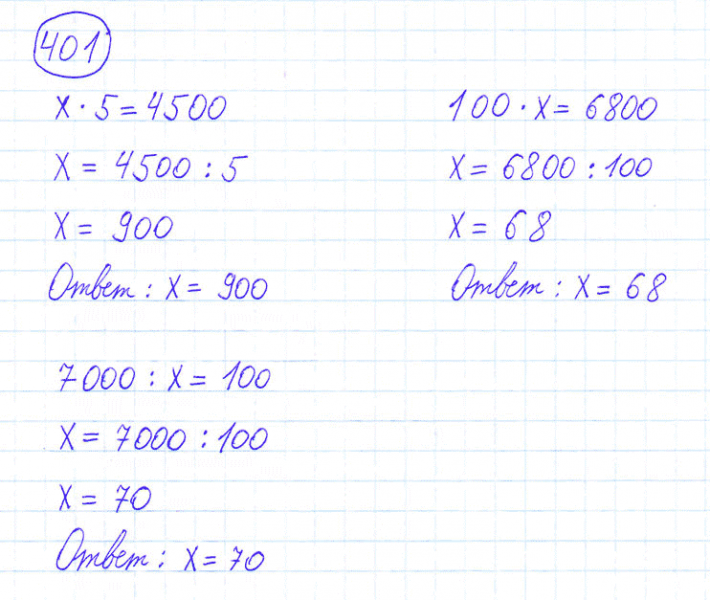 401
x · 5 = 4500
x = 4500 : 5
x = 900
Ответ: x = 900
100 · x = 6800
x = 6800 : 100
x = 68
Ответ: x = 68
7000 : x = 100
x = 7000 : 100
x = 70
Ответ: x = 70